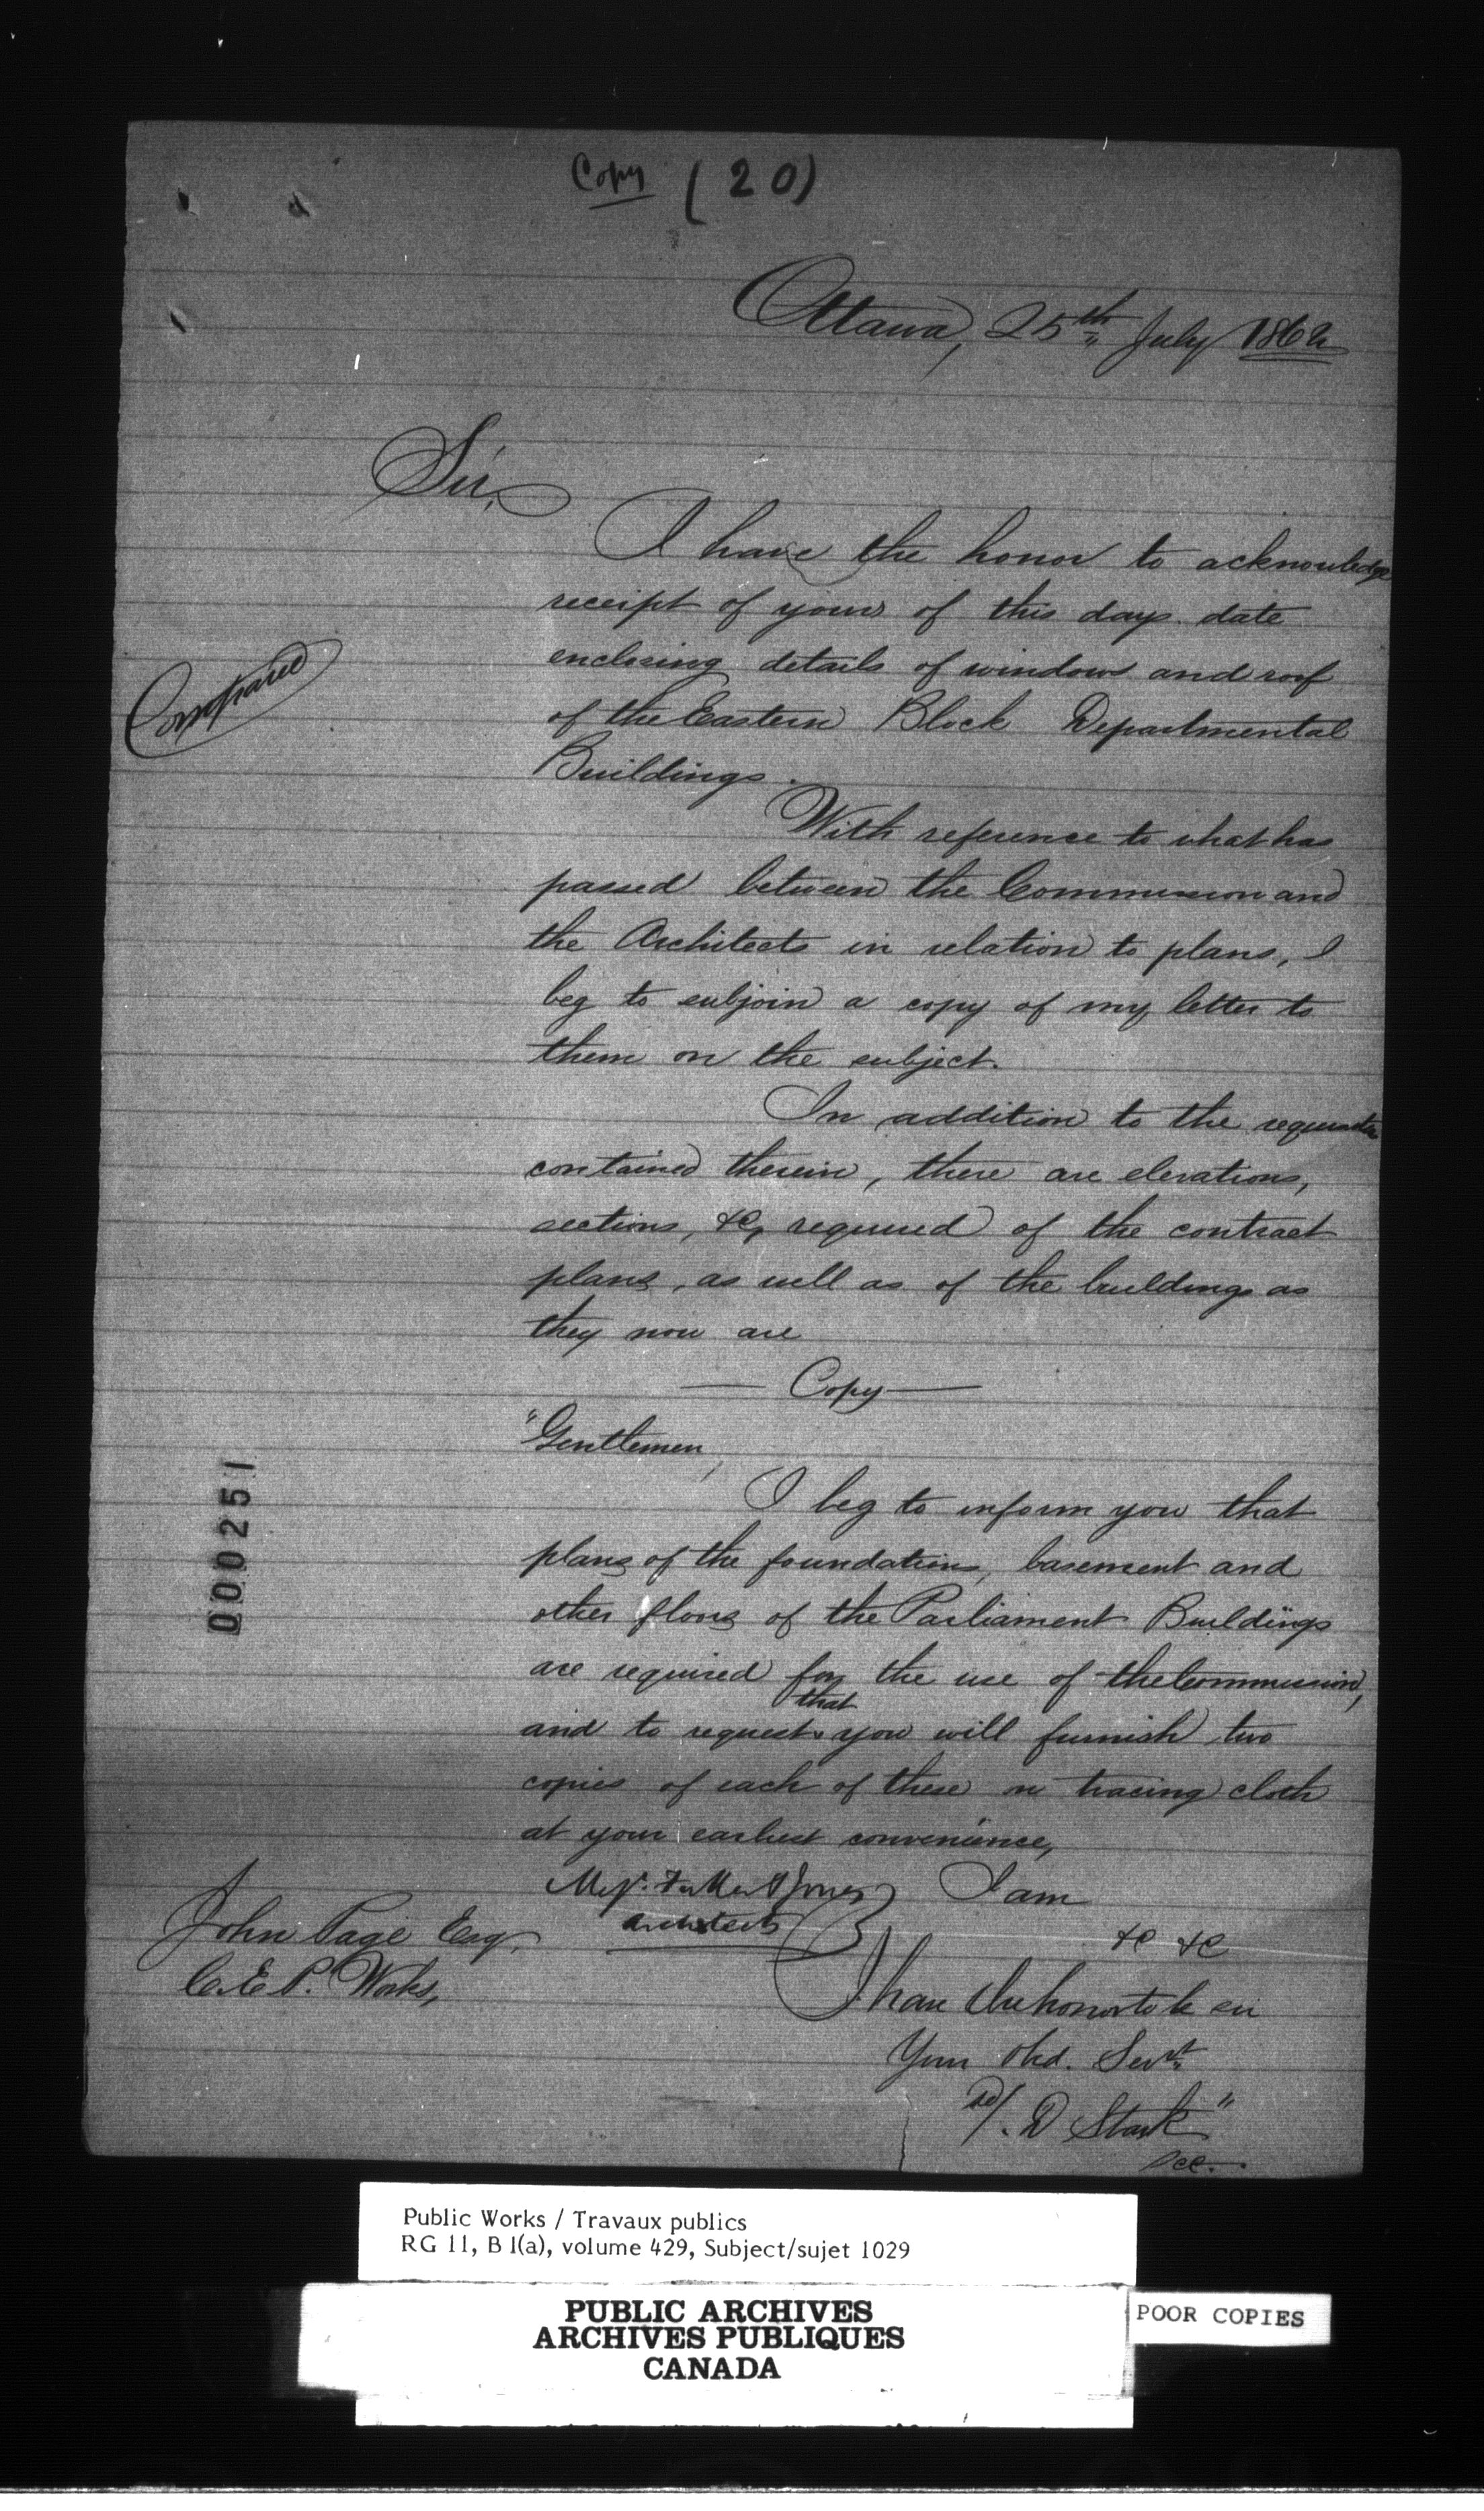 Copy (20)
Ottawa, 25th July 1862
Sir,
I have the honor to acknowledge
receipt of yours of this days date
enclosing details of windows and roof
of the Eastern Block Departmental
Buildings.
Compared
With reference to what has
passed between the Commission and
the Architects in relation to plans, I
beg to subjoin a copy of my letter to
them on the subject.
In addition to the
contained therein, there are elevations,
sections, &c, required of the contract
plans, as well as of the buildings as
they now are
— Copy —
"Gentlemen,
I beg to inform you that
plans of the foundations, basement and
other floors of the Parliament Buildings
are required for the use of the Commission,
and to request that you will furnish two
copies of each of these on tracing cloth
at your earliest convenience,
Messrs. Fuller & Jones I am
Architects
&c &c
John Page Esq,
C.E. P. Works,
I have the honor to be sir
Your Obd. Servt
Sd/. D Stark"
Sec.
000251
Public Works / Travaux publics
RG 11, B 1(a), volume 429, Subject/sujet 1029
PUBLIC ARCHIVES
ARCHIVES PUBLIQUES
CANADA
POOR COPIES